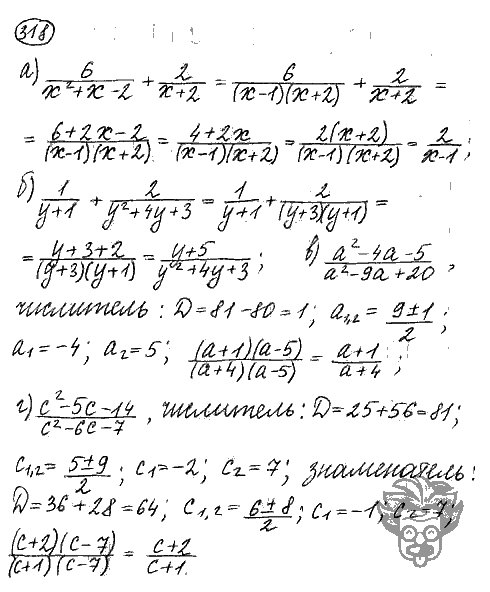 318
а) 6/(x²+x-2) + 2/(x+2) = 6/((x-1)(x+2)) + 2/(x+2) =
= (6+2x-2)/((x-1)(x+2)) = (4+2x)/((x-1)(x+2)) = 2(x+2)/((x-1)(x+2)) = 2/(x-1);
б) 1/(y+1) + 2/(y²+4y+3) = 1/(y+1) + 2/((y+3)(y+1)) =
= (y+3+2)/((y+3)(y+1)) = (y+5)/(y²+4y+3); в) (a²-4a-5)/(a²-9a+20),
числитель: D=81-80=1; a₁,₂ = (9±1)/2;
a₁=-4; a₂=5; ((a+1)(a-5))/((a+4)(a-5)) = (a+1)/(a+4);
г) (c²-5c-14)/(c²-6c-7), числитель: D=25+56=81;
c₁,₂ = (5±9)/2; c₁=-2; c₂=7; знаменатель:
D=36+28=64; c₁,₂ = (6±8)/2; c₁=-1, c₂=7;
((c+2)(c-7))/((c+1)(c-7)) = (c+2)/(c+1)